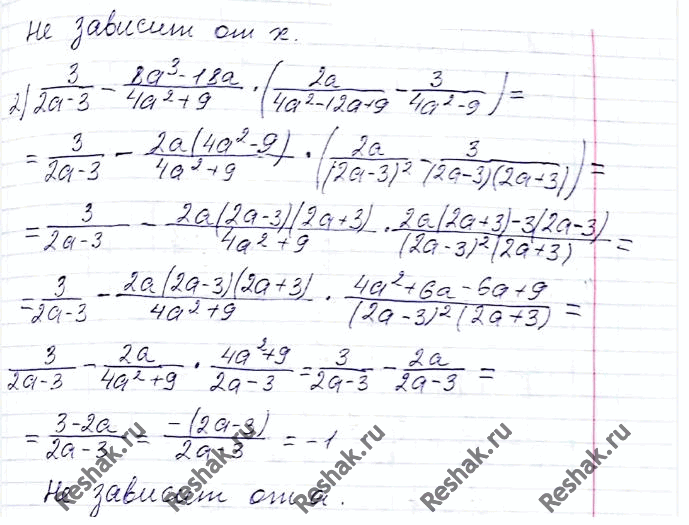 не зависит от x.
2) 3/(2a-3) - (8a³-18a)/(4a²+9) · (2a/(4a²-12a+9) - 3/(4a²-9)) =
= 3/(2a-3) - 2a(4a²-9)/(4a²+9) · (2a/(2a-3)² - 3/((2a-3)(2a+3))) =
= 3/(2a-3) - 2a(2a-3)(2a+3)/(4a²+9) · (2a(2a+3)-3(2a-3))/((2a-3)²(2a+3)) =
= 3/(2a-3) - 2a(2a-3)(2a+3)/(4a²+9) · (4a²+6a-6a+9)/((2a-3)²(2a+3)) =
3/(2a-3) - 2a/(4a²+9) · (4a²+9)/(2a-3) = 3/(2a-3) - 2a/(2a-3) =
= (3-2a)/(2a-3) = -(2a-3)/(2a-3) = -1
Reshak.ru Reshak.ru Reshak.ru Reshak.ru
Не зависит от a.